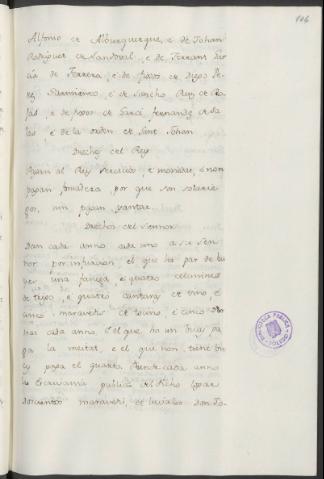 106
Alfonso de Alburquerque, e de Johan
Rodriguez de Sandoval, e de Ferrant Gar
cia de Herrera, e de fijos de Diego Pe
rez Sarmiento, e de Sancho Ruiz de Ro
jas, e de fijos de Garci Fernandez de Sa
las, e de la orden de Sant Johan
Derechos del Rey
Pagan al Rey servicios, e monedas, e non
pagan fonsadera, por que son solarie
gos, nin pagan yantar.
Derechos del Sennor
Dan cada anno cada uno a so Sen
nor por infurcion el que ha par de bu
yes una fanega, e quatro celemines
de trigo, e quatro cantaras de vino, e
cinco maravedis de tocino, e cinco
cada anno. E el que ha un buey pa
ga la meitat, e el que non tiene bu
ey paga el quarto. cada anno
la Escrivania publica
doscientos maravedis, e
BIBLIOTECA PUBLICA
TOLEDO